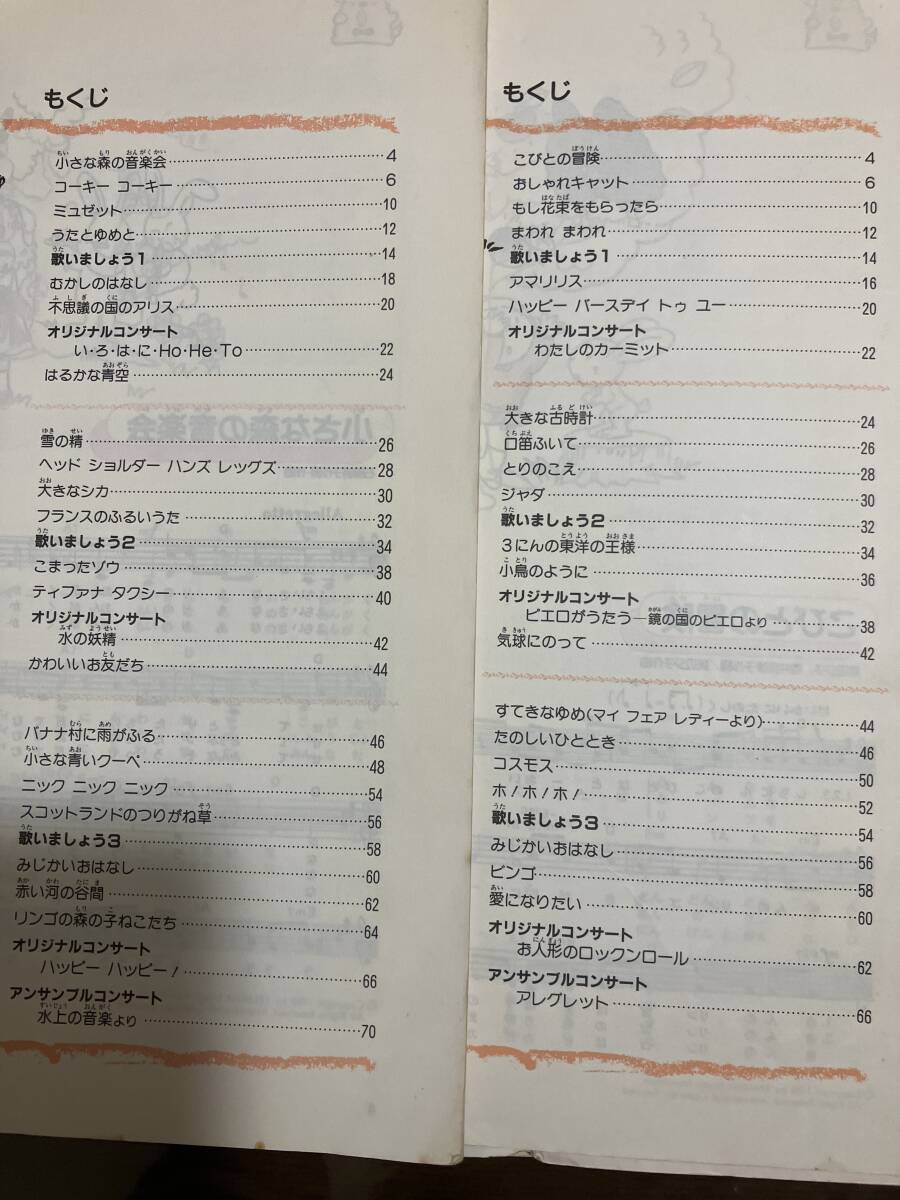 もくじ
小さな森の音楽会 4
コーキー コーキー 6
ミュゼット 10
うたとゆめと 12
歌いましょう1 14
むかしのはなし 18
不思議の国のアリス 20
オリジナルコンサート
い・ろ・は・に・Ho・He・To 22
はるかな青空 24
雪の精 26
ヘッド ショルダー ハンズ レッグズ 28
大きなシカ 30
フランスのふるいうた 32
歌いましょう2 34
こまったゾウ 38
ティファナ タクシー 40
オリジナルコンサート
水の妖精 42
かわいいお友だち 44
バナナ村に雨がふる 46
小さな青いクーペ 48
ニック ニック ニック 54
スコットランドのつりがね草 56
歌いましょう3 58
みじかいおはなし 60
赤い河の谷間 62
リンゴの森の子ねこたち 64
オリジナルコンサート
ハッピー ハッピー! 66
アンサンブルコンサート
水上の音楽より 70
もくじ
こびとの冒険 4
おしゃれキャット 6
もし花束をもらったら 10
まわれ まわれ 12
歌いましょう1 14
アマリリス 16
ハッピー バースデイ トゥ ユー 20
オリジナルコンサート
わたしのカーミット 22
大きな古時計 24
口笛ふいて 26
とりのこえ 28
ジャダ 30
歌いましょう2 32
3にんの東洋の王様 34
小鳥のように 36
オリジナルコンサート
ピエロがうたう—鏡の国のピエロより 38
気球にのって 42
すてきなゆめ(マイ フェア レディーより) 44
たのしいひととき 46
コスモス 50
ホ!ホ!ホ! 52
歌いましょう3 54
みじかいおはなし 56
ビンゴ 58
愛になりたい 60
オリジナルコンサート
お人形のロックンロール 62
アンサンブルコンサート
アレグレット 66